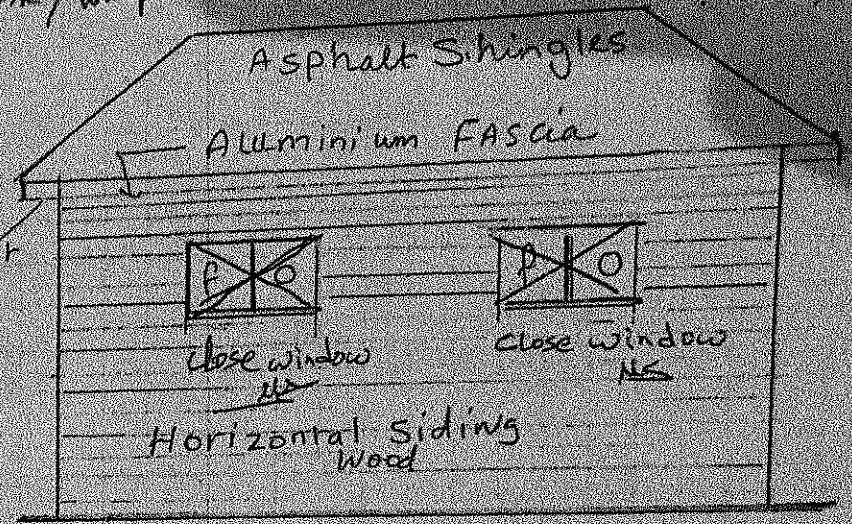 Asphalt Shingles
Aluminium FAScia
F O
F O
Close window
Close window
Horizontal Siding
Wood